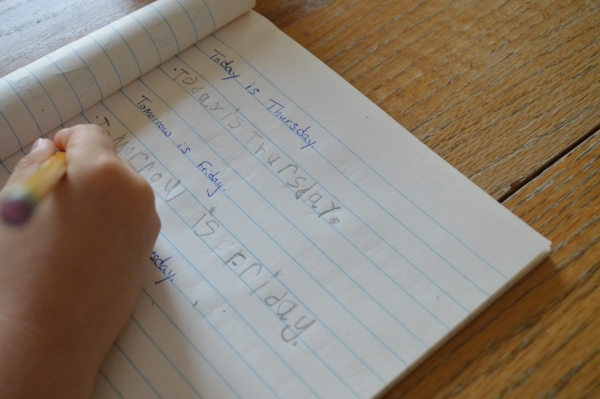 Today is Thursday.
Today is Thursday.
Tomorrow is Friday.
Tomorrow is Friday.